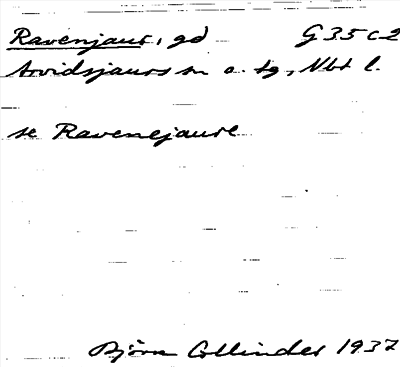 Ravenjaur, gd G 35 c2
Arvidsjaurs sn o. tg, Nbt l.
se Ravenejaure
Björn Collinder 1937